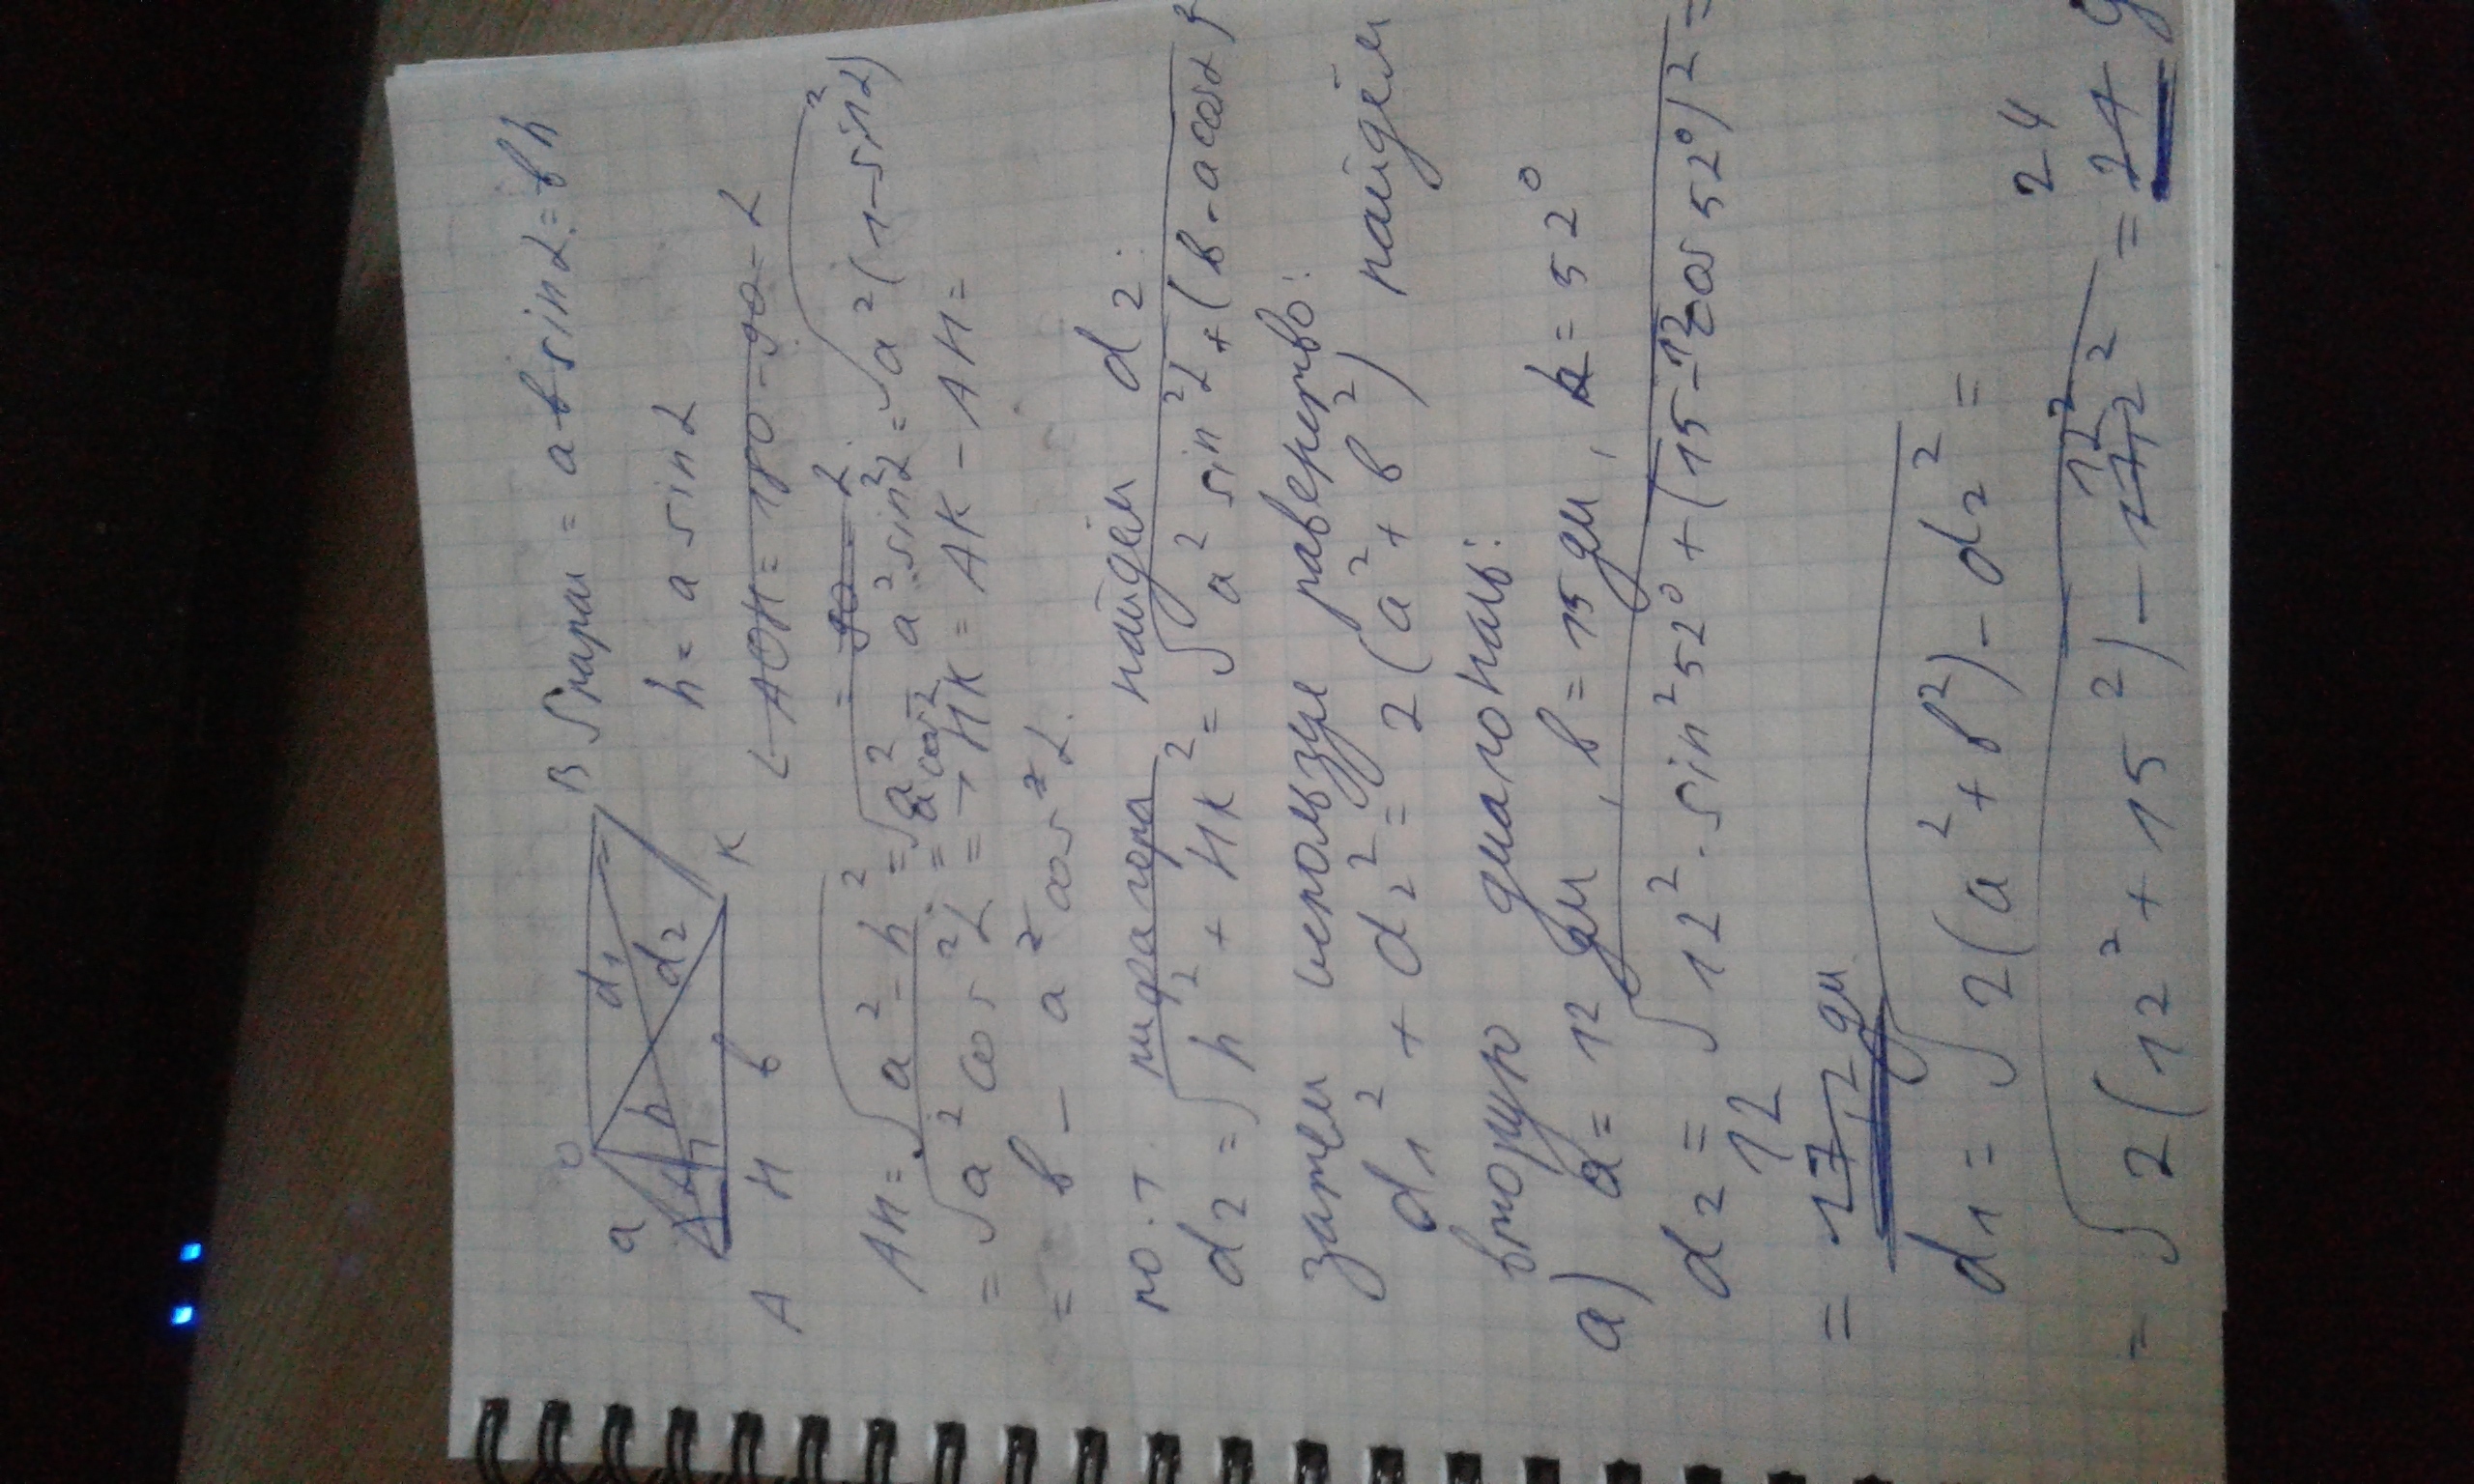 B Sпарал = a b sin α = bh
O
a d1 h d2
K
A H b
h = a sin α
∠ AOH = 180 - 90 - α
= 90 - α
AH = √a² - h² = √a² - a² sin² α = √a² (1 - sin² α)
= √a² cos² α = a cos α => HK = AK - AH =
= b - a cos α.
по т. пифагора найдём d2:
d2 = √h² + HK² = √a² sin² α + (b - a cos α)²
затем использую равенство:
d1² + d2² = 2 (a² + b²) найдём
вторую диагональ:
a) a = 12 дм, b = 15 дм, α = 52°
d2 = √12² · sin² 52° + (15 - 12 cos 52°)² =
12
= 17,2 дм
d1 = √2 (a² + b²) - d2² =
24
= √2 (12² + 15²) - 12² = 24